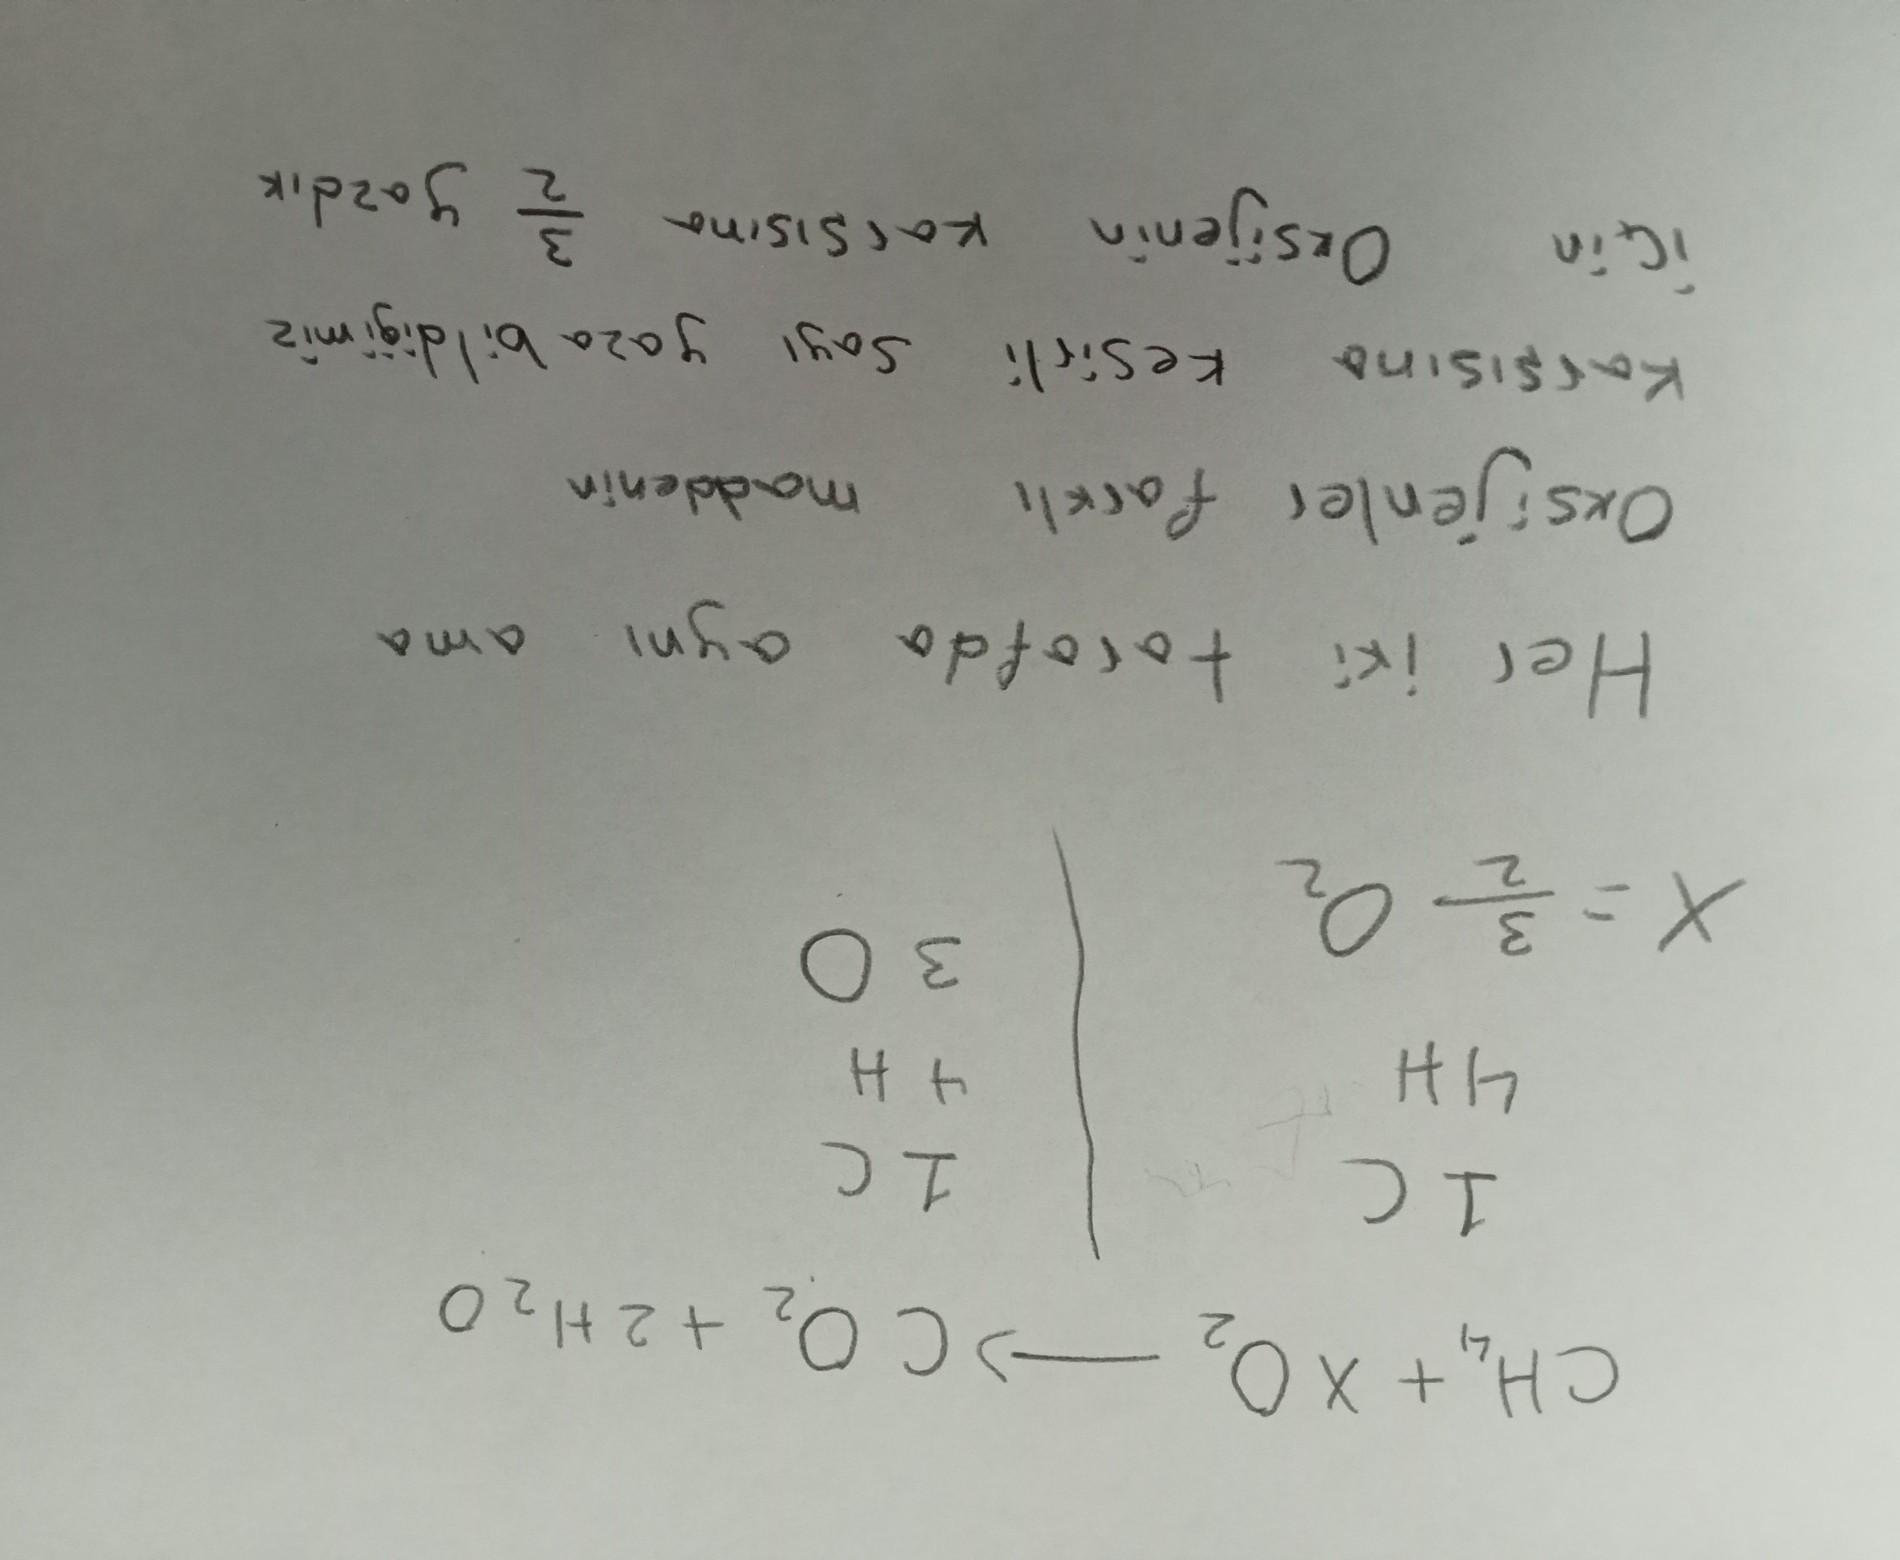 CH₄ + XO₂ → CO₂ + 2H₂O
1C 1C
4H 4H
X = 3/2 O₂ 3O
Her iki tarafda aynı ama
Oksijenler farklı maddenin
karşısına kesirli sayı yaza bildiğimiz
için Oksijenin karşısına 3/2 yazdık